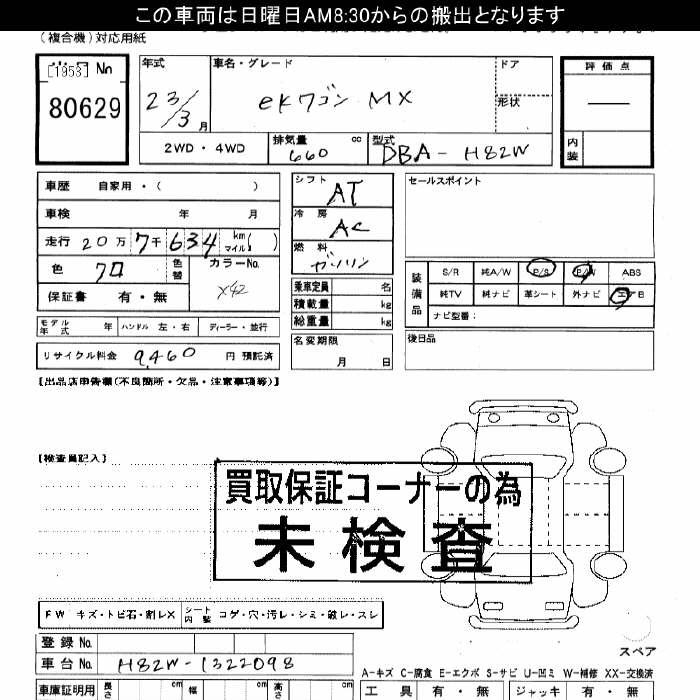 この車両は日曜日AM8:30からの搬出となります
(複合機)対応用紙
[1953] No
80629
年式
23/3月
車名・グレード
eKワゴン MX
ドア
形状
評価点
—
内装
2WD・4WD
排気量 660 cc
型式 DBA-H82W
車歴 自家用・( )
車検 年 月
走行 20万7千634 km マイル( )
色 クロ
色替
カラーNo.
X42
保証書 有・無
モデル年式 年 ハンドル 左・右 ディーラー・並行
リサイクル料金 9,460 円 預託済
シフト AT
冷房 AC
燃料 ガソリン
乗車定員 名
積載量 kg
総重量 kg
名変期限
月 日
セールスポイント
装備品
S/R 純A/W P/S P/W ABS
純TV 純ナビ 革シート 外ナビ エアB
ナビ型番:
後日品
【出品店申告欄(不良箇所・欠品・注意事項等)】
【検査員記入】
買取保証コーナーの為
未検査
FW キズ・トビ石・割レX
シート内装 コゲ・穴・汚レ・シミ・破レ・スレ
登録No.
車台No. H82W-1322098
車庫証明用 長さ cm 幅 cm 高さ cm
スペア
A-キズ C-腐食 E-エクボ S-サビ U-凹ミ W-補修 XX-交換済
工具 有・無 ジャッキ 有・無